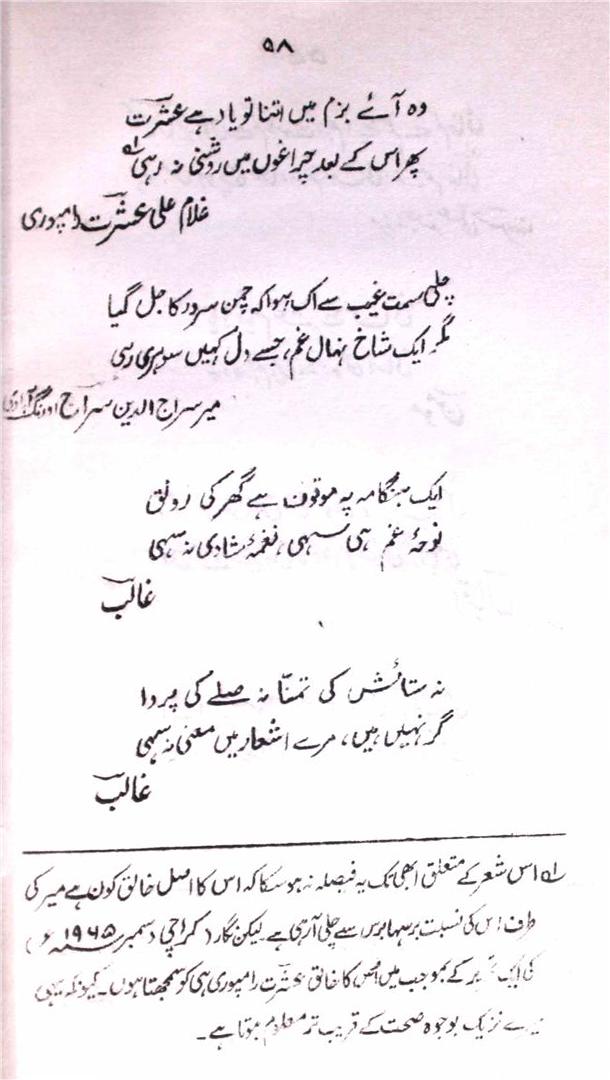 ۵۸
وہ آئے بزم میں اتنا تو یاد ہے عشرت
پھر اس کے بعد چراغوں میں روشنی نہ رہی ۱؎
غلام علی عشرت رامپوری
چلی سمت غیب سے اک ہوا کہ چمن سرور کا جل گیا
مگر ایک شاخ نہال غم، جسے دل کہیں سو ہری رہی
میر سراج الدین سراج اورنگ آبادی
ایک ہنگامہ پہ موقوف ہے گھر کی رونق
نوحۂ غم ہی سہی، نغمۂ شادی نہ سہی
غالب
نہ ستائش کی تمنّا نہ صلے کی پروا
گر نہیں ہیں، مرے اشعار میں معنی نہ سہی
غالب
۱؎ اس شعر کے متعلق ابھی تک یہ فیصلہ نہ ہوسکا کہ اس کا اصل خالق کون ہے میر کی
طرف اس کی نسبت برسہا برس سے چلی آرہی ہے لیکن نگار (کراچی دسمبر ۱۹۶۵ء)
کی ایک کے بموجب میں اس کا خالق عشرت رامپوری ہی کو سمجھتا ہوں۔ کیونکہ یہی
میرے نزدیک بوجوہ صحت کے قریب تر معلوم ہوتا ہے۔